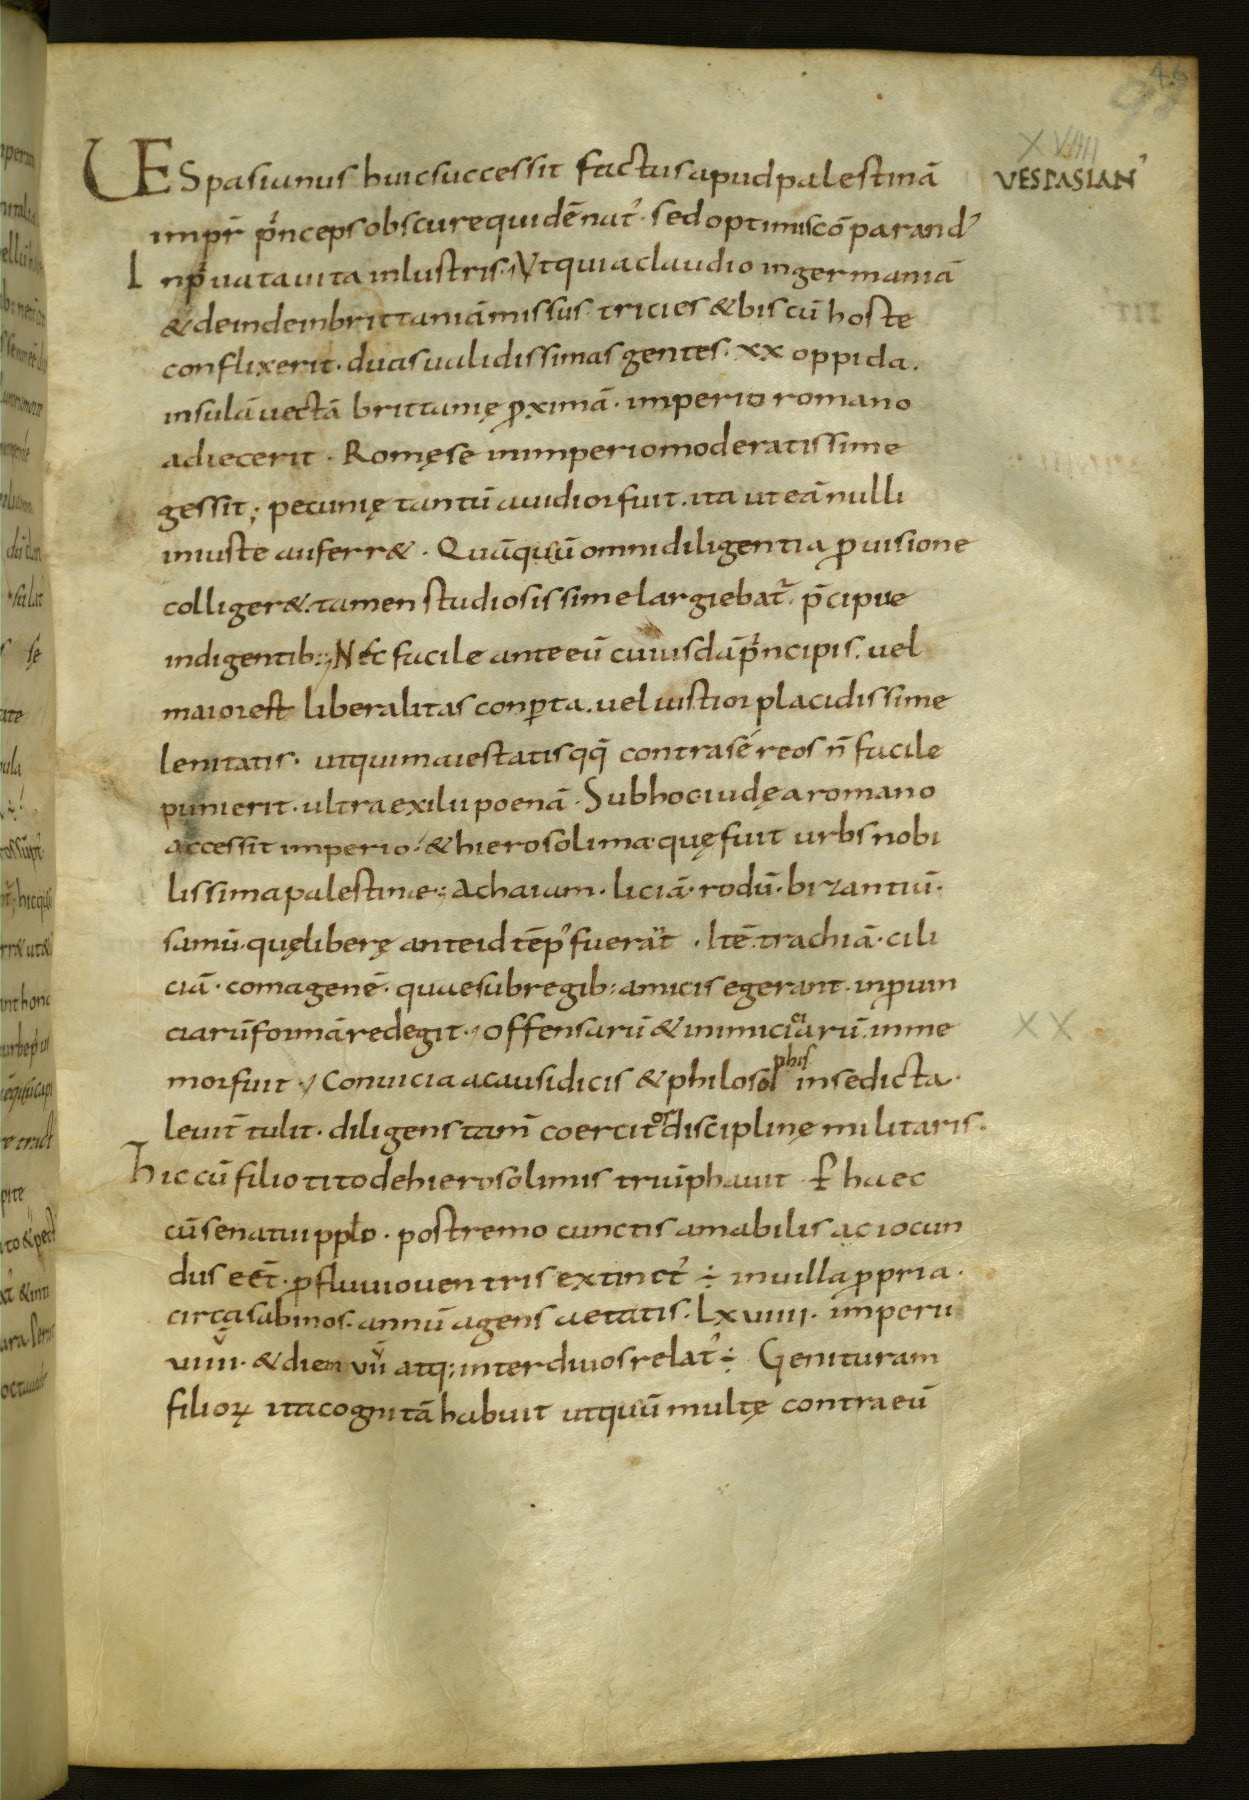 46
XVIIII
VESPASIAN᾽
VESpasianus huic successit factus apud palestinā
impr̄ p͛nceps obscure quidē nat᾽ · sed optimis cō parand᾽
In p͛uata uita inlustris · Vt qui a claudio in germaniā
& deinde in brittaniā missus · tricies & bis cū hoste
conflixerit · duas ualidissimas gentes · xx oppida .
insulā uectā brittanię ꝓximā · imperio romano
adiecerit · Romę se in imperio moderatissime
gessit ; pecunię tantū auidior fuit . ita ut eā nulli
iniuste auferr& . Quā quū omni diligentia ꝓuisione
colliger& . tamen studiosissime largiebat᷑ . p̄cipue
indigentib: ; Nec facile ante eū cuiusdā p͛ncipis . uel
maior est liberalitas conꝑta . uel iustior placidissime
lenitatis · ut qui maiestatis qq̄ contra se reos n̄ facile
punierit · ultra exilii poenā · Sub hoc iudęa romano
accessit imperio · & hierosolima · quę fuit urbs nobi
lissima palestinae ; Achaiam · liciā · rodū · bizantiū ·
samū · quę liberę ante id tēp᾽ fuerāt · Itē trachiā · cili
ciā · comagenē · quae sub regib: amicis egerant · in ꝓuin
ciarū formā redegit · Offensarū & inimicitiarū inme
mor fuit · Conuicia a causidicis & philosophis in se dicta ·
leuit̄ tulit · diligens tam̄ coercitor disciplinę militaris ·
Hic cū filio tito de hierosolimis triūphauit · Ꝑ haec
cū senatui pplo · postremo cunctis amabilis ac iocun
dus eēt · ꝓfluuio uentris extinct᾽ ÷ in uilla ꝓpria ·
circa sabinos · annū agens aetatis · Lxuiiii · imperii
uiiii · & diem uii atq; inter diuos relat᾽ ÷ Genituram
filioꝝ ita cognitā habuit ut quū multę contra eū
XX